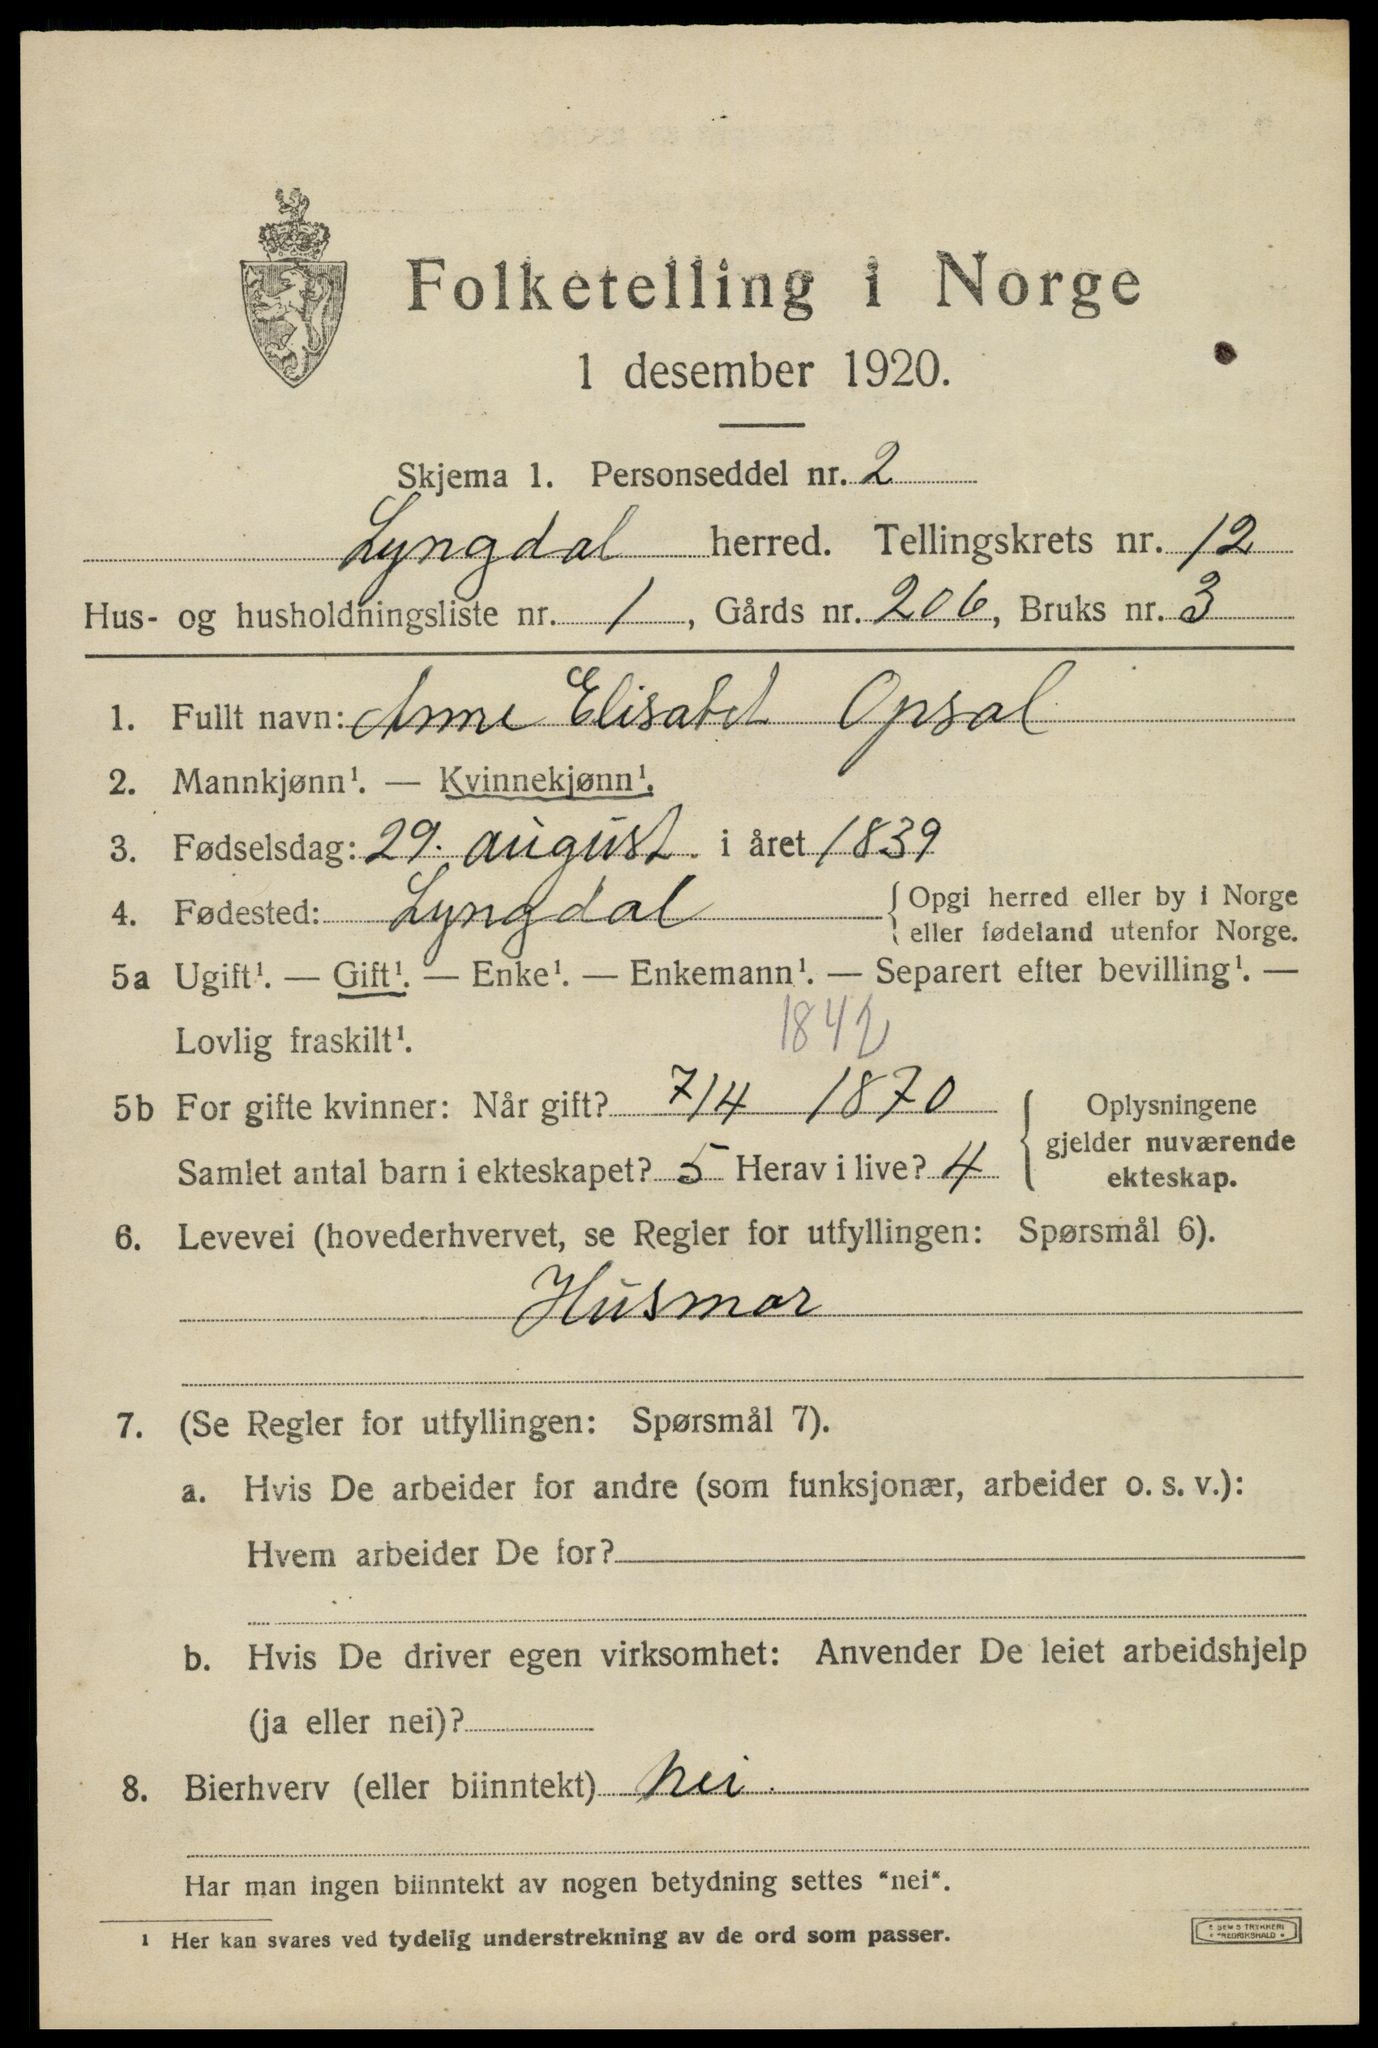 Folketelling i Norge
1 desember 1920.
Skjema 1. Personseddel nr. 2
Lyngdal herred. Tellingskrets nr. 12
Hus- og husholdningsliste nr. 1, Gårds nr. 206, Bruks nr. 3
1. Fullt navn: Anne Elisabet Opsal
2. Mannkjønn¹. — Kvinnekjønn¹.
3. Fødselsdag: 29. august i året 1839
4. Fødested: Lyngdal { Opgi herred eller by i Norge
eller fødeland utenfor Norge.
5a Ugift¹. — Gift¹. — Enke¹. — Enkemann¹. — Separert efter bevilling¹. —
Lovlig fraskilt¹.
1842
5b For gifte kvinner: Når gift? 7/4 1870
Samlet antal barn i ekteskapet? 5 Herav i live? 4
{ Oplysningene
gjelder nuværende
ekteskap.
6. Levevei (hovederhvervet, se Regler for utfyllingen: Spørsmål 6).
Husmor
7. (Se Regler for utfyllingen: Spørsmål 7).
a. Hvis De arbeider for andre (som funksjonær, arbeider o. s. v.):
Hvem arbeider De for?
b. Hvis De driver egen virksomhet: Anvender De leiet arbeidshjelp
(ja eller nei)?
8. Bierhverv (eller biinntekt) nei.
Har man ingen biinntekt av nogen betydning settes "nei".
¹ Her kan svares ved tydelig understrekning av de ord som passer.
E SEM'S TRYKKERI
FREDRIKSHALD